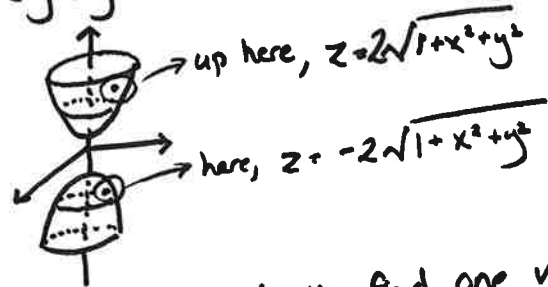 up here, z=2√1+x²+y²
here, z = -2√1+x²+y²
find one